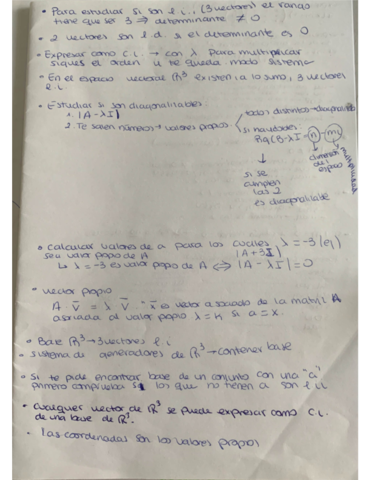 • Para estudiar si son l.i., (3 vectores) el rango
tiene que ser 3 ⇒ determinante ≠ 0
• 2 vectores son l.d. si el determinante es 0
• Expresar como c.l. → con λ para multiplicar
sigues el orden y te queda modo sistema
• En el espacio vectorial ℝ³ existen, a lo sumo, 3 vectores
l.i
• Estudiar si son diagonalizables
1. |A - λI|
2. Te salen números → valores propios
todos distintos → diagonaliz
si hay dobles:
Rg(B - λI = n - mλ
dimension del espacio
multiplicidad
si se
cumplen
las 2
es diagonalizable
• Calcular valores de a para los cuales λ = -3 (ej)
seu valor propio de A |A + 3I|
↳ λ = -3 es valor propio de A ⇔ |A - λI| = 0
• Vector propio
A · v = λ · v "x es vector asociado de la matriz A
asociada al valor propio λ = k si a = x.
• Base ℝ³ → 3 vectores l.i
• Sistema de generadores de ℝ³ → contener base
• Si te pide encontrar base de un conjunto con una "a"
primero comprueba si los que no tienen a son l.i
• Cualquier vector de ℝ³ se puede expresar como c.l.
de una base de ℝ³.
• las coordenadas son los valores propios